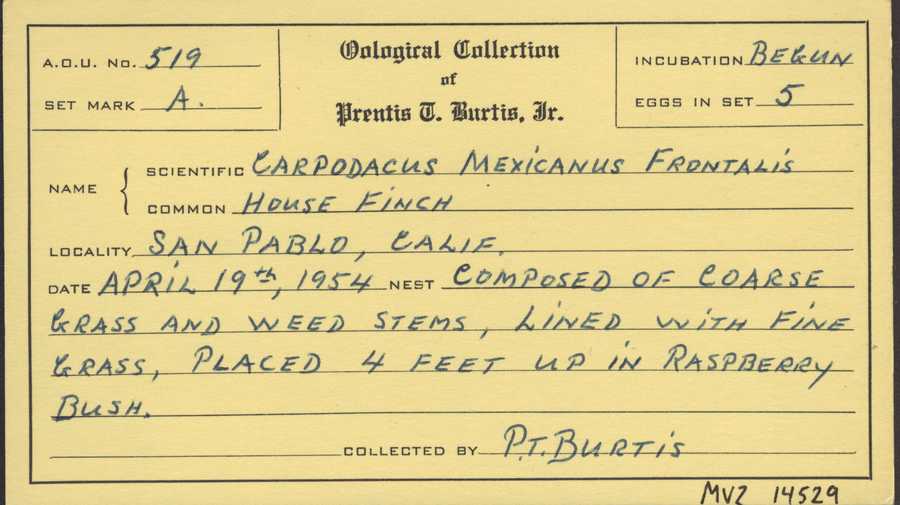 A.O.U. No. 519
SET MARK A.
Oological Collection
of
Prentis T. Burtis, Jr.
INCUBATION BEGUN
EGGS IN SET 5
NAME { SCIENTIFIC CARPODACUS MEXICANUS FRONTALIS
COMMON HOUSE FINCH
LOCALITY SAN PABLO, CALIF.
DATE APRIL 19th, 1954 NEST COMPOSED OF COARSE
GRASS AND WEED STEMS, LINED WITH FINE
GRASS, PLACED 4 FEET UP IN RASPBERRY
BUSH.
COLLECTED BY P.T. BURTIS
MVZ 14529